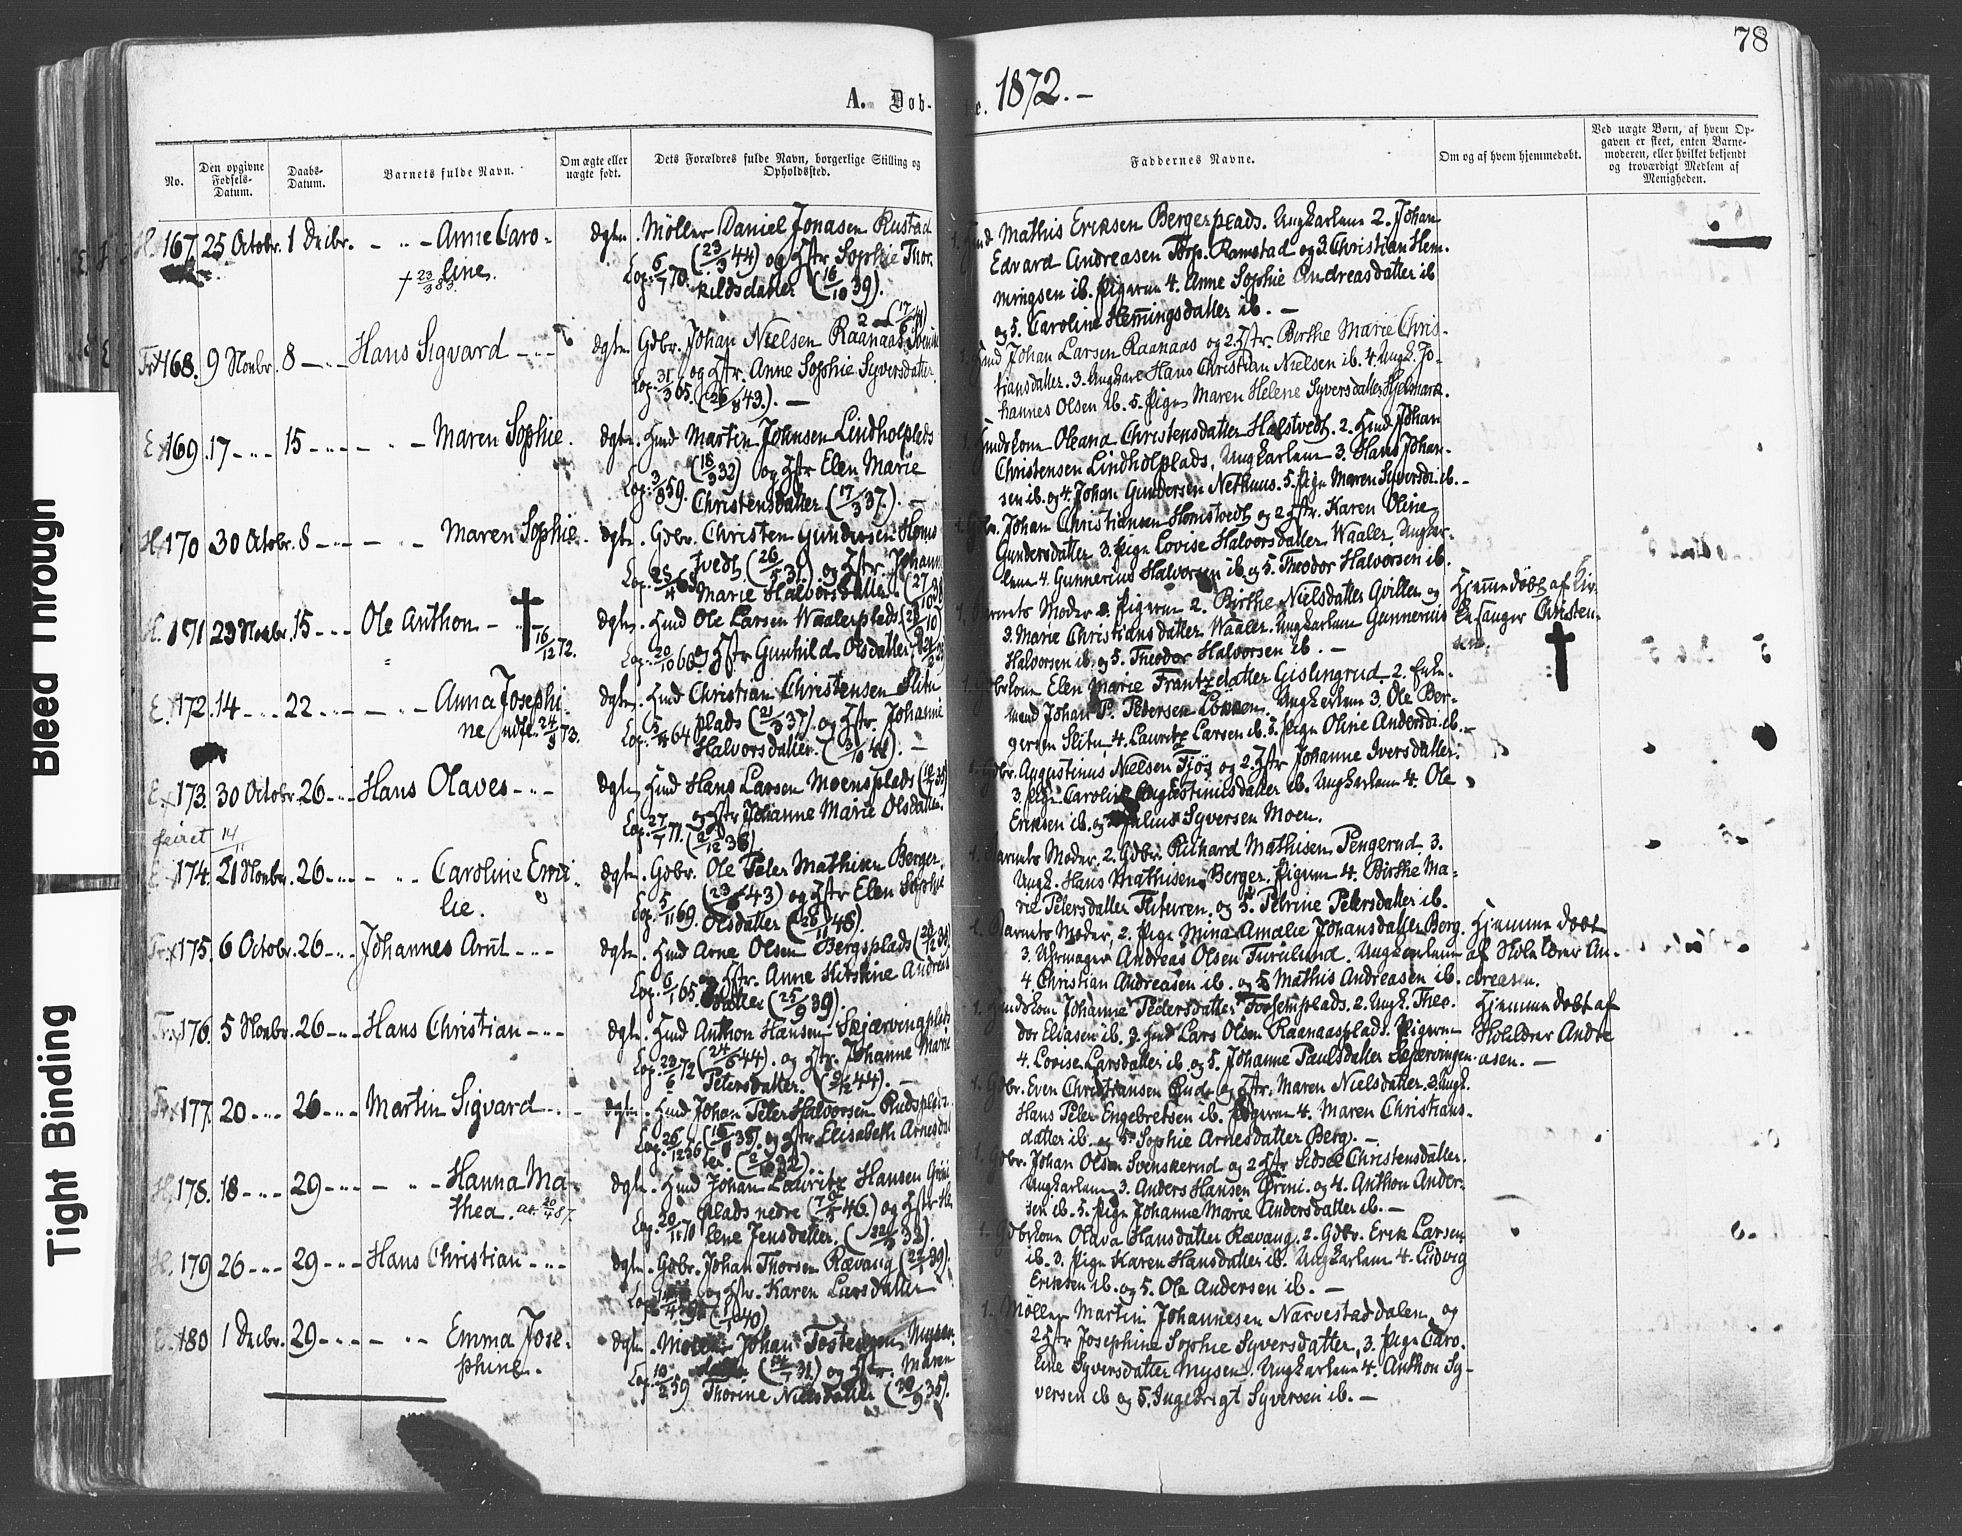 78
A. Døb-
e. 1872. -
No.
Den opgivne Fødsels-Datum.
Daabs-Datum.
Barnets fulde Navn.
Om ægte eller uægte født.
Dets Forældres fulde Navn, borgerlige Stilling og Opholdssted.
Faddernes Navne.
Om og af hvem hjemmedøbt.
Ved uægte Børn, af hvem Op-
gaven er skeet, enten Barne-
moderen, eller hvilket bekjendt
og troværdigt Medlem af
Menigheden.
167. 25 Octobr. 1 Decbr. - " - Anne Caro-
line.
ægte. Møller Daniel Jonasen Rustad
(23/9 44) og Hstr Sophie Thor-
Cop: 6/7 70. kildsdatter (16/10 39).
Mathis Eriksen Bergerplads. Ungkarlene 2. Johan
Edvard Andreasen Torp. Ramstad og 3. Christian Hem-
mingsen ib. Pigerne 4. Anne Sophie Andreasdatter ib
og 5. Caroline Hemingsdatter ib. -
168. 9 Novbr. 8 - " - Hans Sigvard - " -
ægte. Gdbr. Johan Nielsen Raanaas
og Hstr. Anne Sophie Syversdatter
Cop: 31/3 65. (26/8 43.). -
Johan Larsen Raanaas og 2. Hstr. Birthe Marie Chris-
tiansdatter. 3. Ungkarl Hans Christian Nielsen ib. 4. Ungk. Jo-
hannes Olsen ib. 5. Pige Maren Helene Syversdatter
169. 17 - " - 15 - " - - " - Maren Sophie.
ægte. Husmd Martin Johnsen Lindholplads
(18/3 33) og Hstr Elen Marie
Cop: 3/8 59. Christensdatter (17/3 37). -
Husmdskone Oleana Christensdatter Holstvedt. 2. Husmd Johan
Christensen Lindholplads, Ungkarlene 3. Hans Johan-
sen ib. og 4. Johan Gundersen Nethuus. 5. Pige Maren Syversdr. ib. -
170 30 Octobr. 8 - " - - " - Maren Sophie.
ægte. Gdbr. Christen Gundersen Homs-
tvedt (26/5 31) og Hstr. Johanne
Marie Halvorsdatter
Gdbr. Johan Christiansen Homstvedt og 2 Hstr. Karen Oline
Gundersdatter. 3. Pige Lovise Halvorsdatter Waaler, Ungkar-
lene 4. Gunnerius Halvorsen ib. og 5. Theodor Halvorsen ib.
171 23 Novbr. 15 - " - Ole Anthon - † 16/12 72.
ægte. Husmd Ole Larsen Waalerplads
Cop: 20/10 60. og Hstr Gunhild Olsdatter
1. Barnets Moder. Pigerne 2. Birthe Nielsdatter og
3. Marie Christiansdatter Waaler. Ungkarlene Gunnerius
Halvorsen ib. og 5. Theodor Halvorsen ib. -
Hjemmedøbt af Kir-
kesanger Christen-
sen.
172. 14 - " - 22 - " - - " - Anna Josephi-
ne
ægte. Husmd Christian Christensen Slitu
plads (21/3 37). og Hstr. Johanne
Halvorsdatter
Gdbrkone Elen Marie Frantzdatter Gislingrud. 2. Enke-
mand Johan P. Petersen. Ungkarlene 3. Ole Ber-
gersen Slitu 4. Lauritz Larsen ib. 5. Pige Oline Andersdr. ib. -
173. 30 Octobr. 26 - " - Hans Olaves - " -
ægte. Husmd Hans Larsen Moensplads
og Hstr Johanne Marie Olsdatter
Cop: 27/7 71.
Gdbr. Augustinus Nielsen Fjøs og 2. Hstr Johanne Iversdatter.
3. Pige Caroline Augustinusdatter ib. Ungkarlene 4. Ole
Eriksen ib. og Julius Syversen Moen.
174. 21 Novbr. 26 - " - - " - Caroline Emi-
lie.
ægte. Gdbr. Ole Peter Mathisen Berger
(23/6 43) og Hstr Elen Sophie
Cop: 5/11 69. Olsdatter (26/11 48).
1. Barnets Moder, 2. Gdbr. Richard Mathisen Pengerud. 3.
Ungk. Hans Mathisen Berger. Pigerne 4. Birthe Ma-
rie Petersdatter. og 5. Petrine Petersdatter ib.
175. 6 Octobr. 26 - " - Johannes Arnt - " -
ægte. Husmd Arne Olsen Bergsplads
og Hstr. Anne Kirstine Andreas
datter (25/9 39).
1. Barnets Moder, 2. Pige Mina Amalie Johansdatter Berg.
3. Uhrmager Andreas Olsen Furulund. Ungkarlene
4. Christian Andreasen ib. og 5 Mathis Andreasen ib.
Hjemmedøbt
af Skolelærer An-
dreasen.
176. 5 Novbr. 26 - " - Hans Christian - " -
ægte. Husmd Anthon Hansen Skjærvingplads
(24/6 44). og Hstr. Johanne Marie
Petersdatter.
1. Husmdskone Johanne Pedersdatter. 2. Ungk. Theo-
dor Eliasen ib. 3. Husmd Lars Olsen Raanaasplads. Pigerne
4. Lovise Larsdatter ib. og 5. Johanne Paulsdatter
Hjemmedøbt af
Skolelærer Andre-
asen. -
177. 20 - " - 26 - " - Martin Sigvard - " -
ægte. Husmd Johan Peter Halvorsen Rudsplads
og Hstr Elisabeth Arnesdat
ter.
1. Gdbr. Even Christiansen Rud og Hstr. Maren Nielsdatter. 3. Ungk.
Hans Peter Engebretsen ib. Pigerne 4. Maren Christians-
datter ib. og 5. Sophie Arnesdatter Berg. -
178. 18 - " - 29 - " - - " - Hanna Ma-
thea.
ægte. Husmd Johan Lauritz Hansen
plads nedre og Hstr He-
lene Jensdatter.
1. Gdbr. Johan Olsen Svenskerud og 2 Hstr Sidsel Christensdatter.
Ungkarlene 3. Anders Hansen Greni. og 4. Anthon Ander-
sen ib. 5. Pige Johanne Marie Andersdatter ib. -
179 26 - " - 29 - " - Hans Christian - " -
ægte. Gdbr. Johan Thorsen Rævaug
og Hstr. Karen Larsdatter
1. Gdbrkone Olava Hansdatter Rævaug. 2. Gdbr. Erik Larsen
ib. 3. Pige Karen Hansdatter ib. Ungkarlene 4. Lidvig
Eriksen ib. og 5. Ole Andersen ib. -
180 1 Decbr. 29 - " - - " - Emma Jose-
phine.
ægte. Johan Tostensen Mysen
og Hstr. Maren
Cop: 10/2 59 Thorine Nielsdatter
1. Møller Martin Johannesen Narvestaddalen og
2 Hstr Josephine Sophie Syversdatter, 3. Pige Caro-
line Syversdatter Mysen. Ungkarlene 4. Anthon Sy-
versen ib og 5. Ingebrigt Syversen ib. -
Bleed Through
Tight Binding